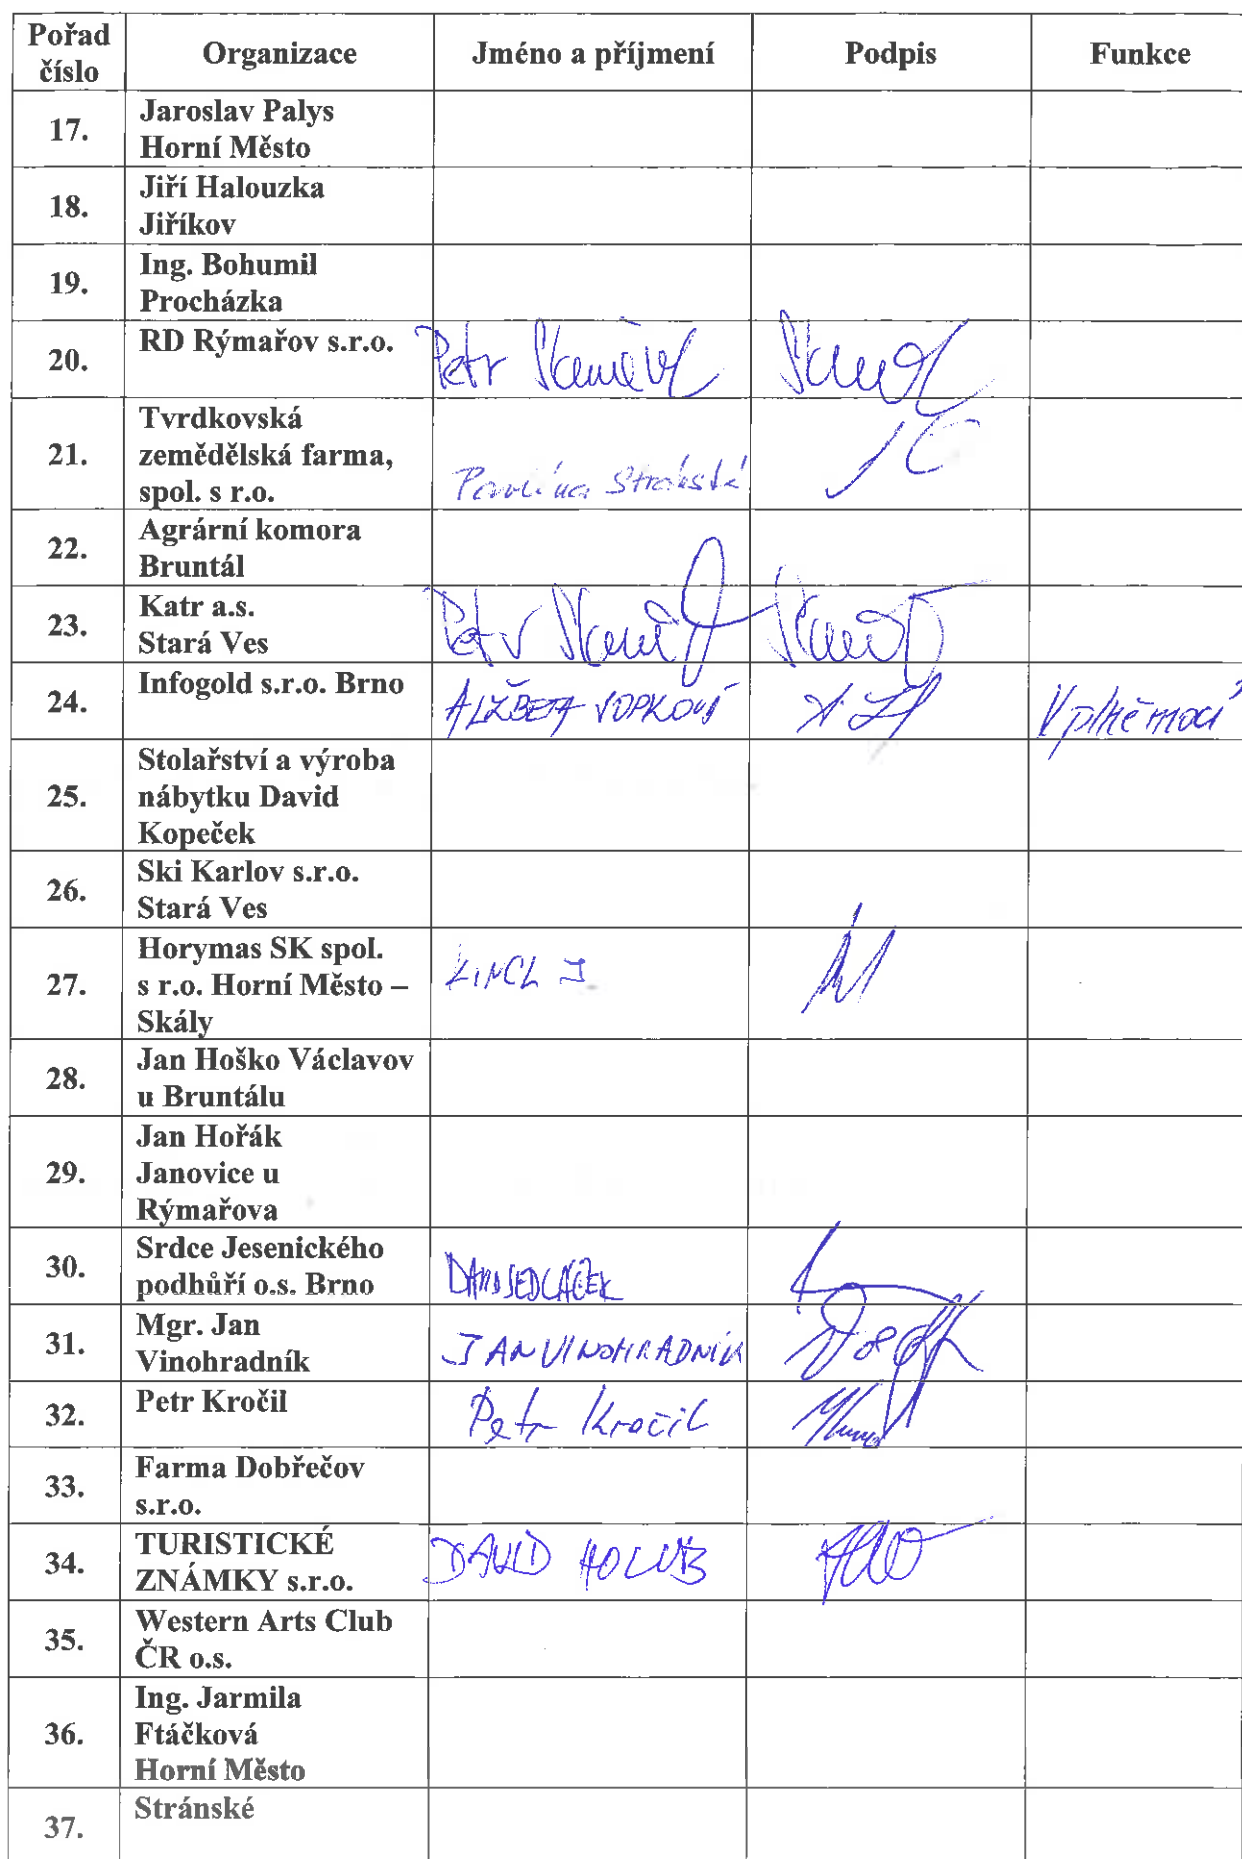 Pořad číslo Organizace Jméno a příjmení Podpis Funkce
17. Jaroslav Palys
Horní Město
18. Jiří Halouzka
Jiříkov
19. Ing. Bohumil
Procházka
20. RD Rýmařov s.r.o. Petr
21. Tvrdkovská
zemědělská farma,
spol. s r.o. Pavlína Stránská
22. Agrární komora
Bruntál
23. Katr a.s.
Stará Ves Petr
24. Infogold s.r.o. Brno ALŽBETA V plné moci
25. Stolařství a výroba
nábytku David
Kopeček
26. Ski Karlov s.r.o.
Stará Ves
27. Horymas SK spol.
s r.o. Horní Město –
Skály KINCL J
28. Jan Hoško Václavov
u Bruntálu
29. Jan Hořák
Janovice u
Rýmařova
30. Srdce Jesenického
podhůří o.s. Brno SEDLÁČEK
31. Mgr. Jan
Vinohradník JAN VINOHRADNÍK
32. Petr Kročil Petr Kročil
33. Farma Dobřečov
s.r.o.
34. TURISTICKÉ
ZNÁMKY s.r.o. DAVID HOLUB
35. Western Arts Club
ČR o.s.
36. Ing. Jarmila
Ftáčková
Horní Město
37. Stránské